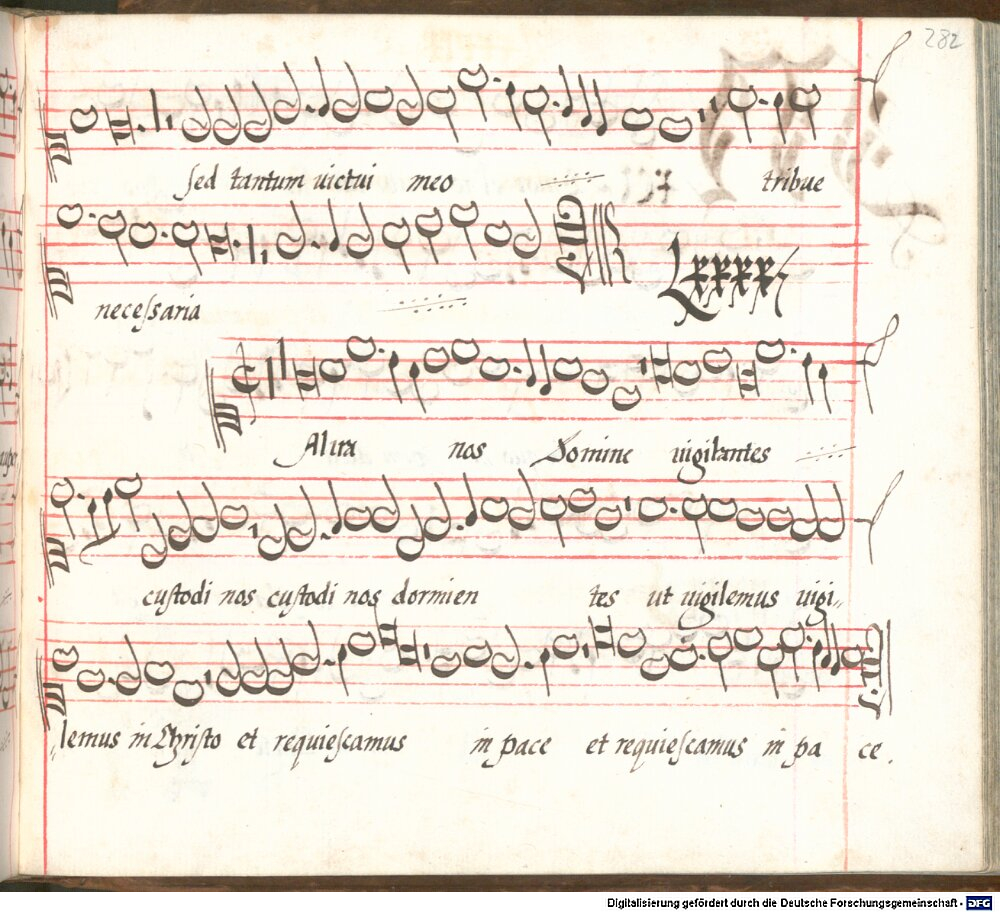 282
sed tantum victui meo tribue
necessaria
Lxxxx
Alva nos Domine vigilantes
custodi nos custodi nos dormien tes ut vigilemus vigi„
„lemus in Christo et requiescamus in pace et requiescamus in pa ce.
Digitalisierung gefördert durch die Deutsche Forschungsgemeinschaft - DFG